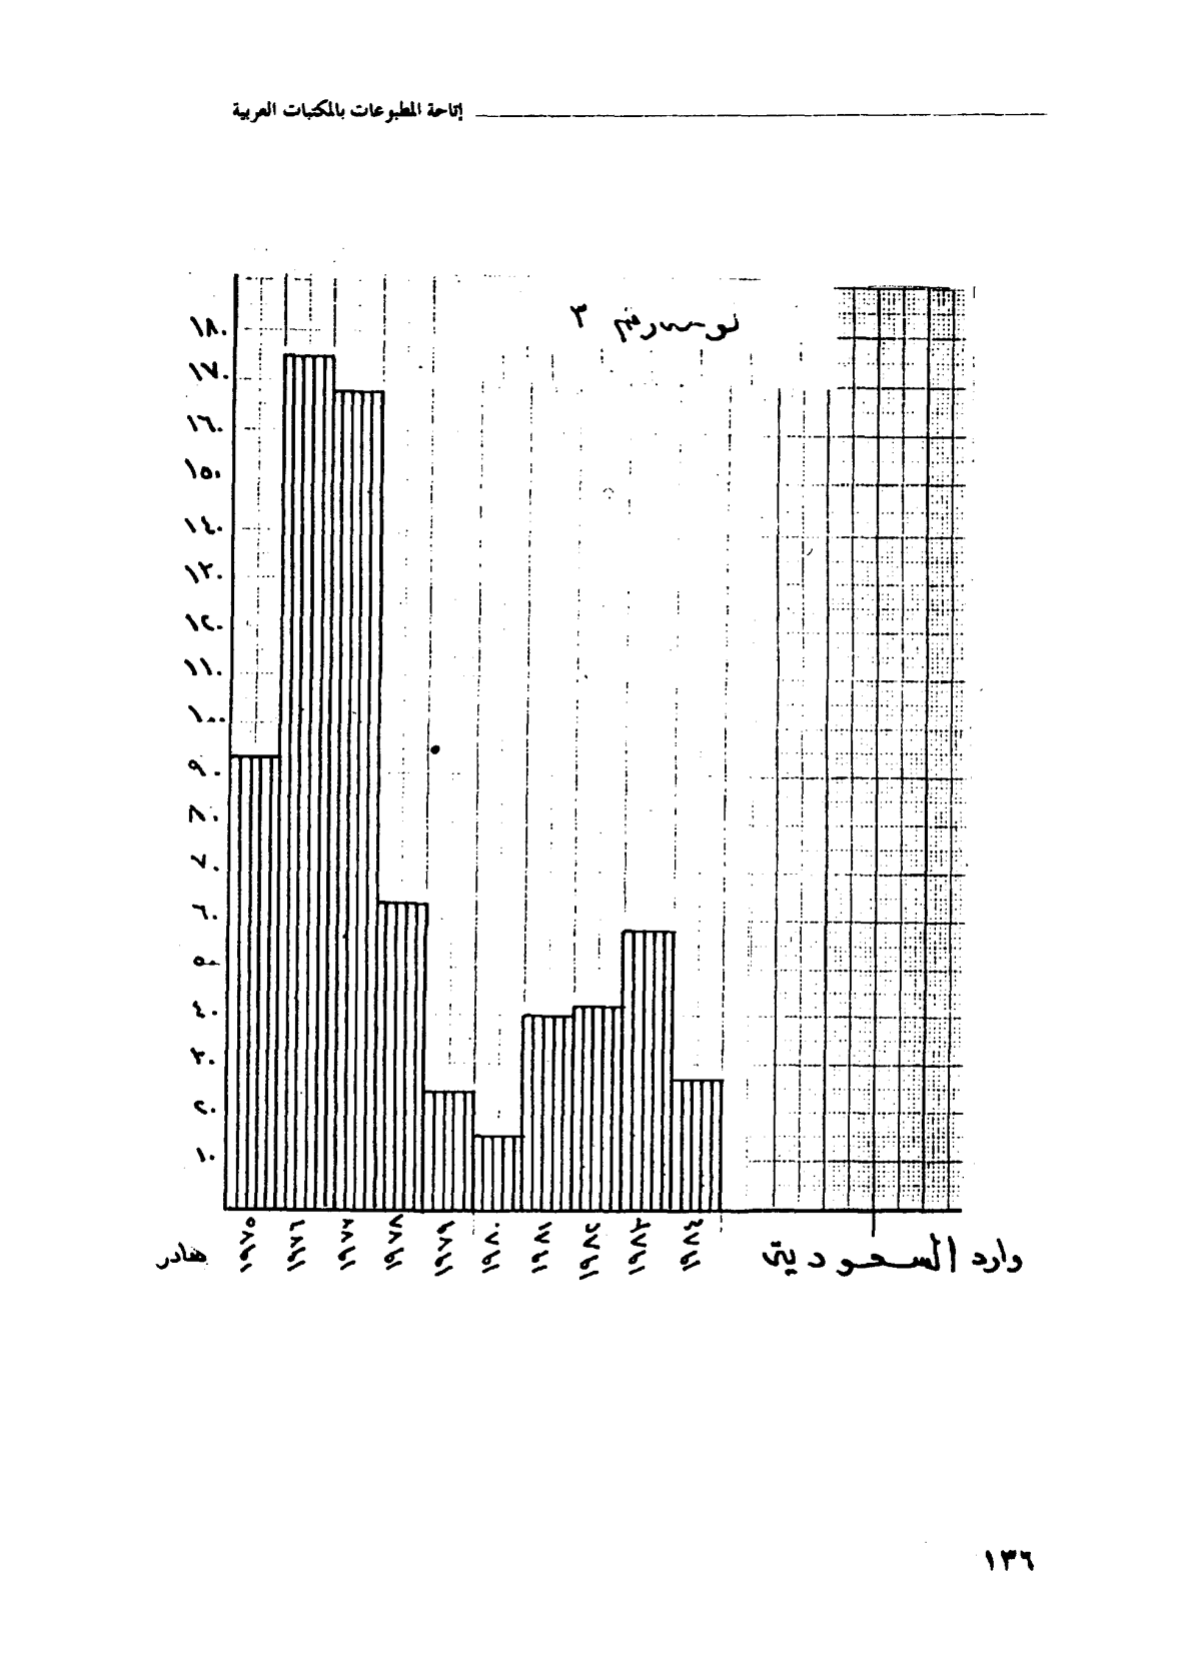 إتاحة المطبوعات بالمكتبات العربية
رقم ٣
١٨٠
١٧٠
١٦٠
١٥٠
١٤٠
١٣٠
١٢٠
١١٠
١٠٠
٩٠
٨٠
٧٠
٦٠
٥٠
٤٠
٣٠
٢٠
١٠
١٩٧٥ ١٩٧٦ ١٩٧٧ ١٩٧٨ ١٩٧٩ ١٩٨٠ ١٩٨١ ١٩٨٢ ١٩٨٣ ١٩٨٤
وارد السعودية
١٣٦